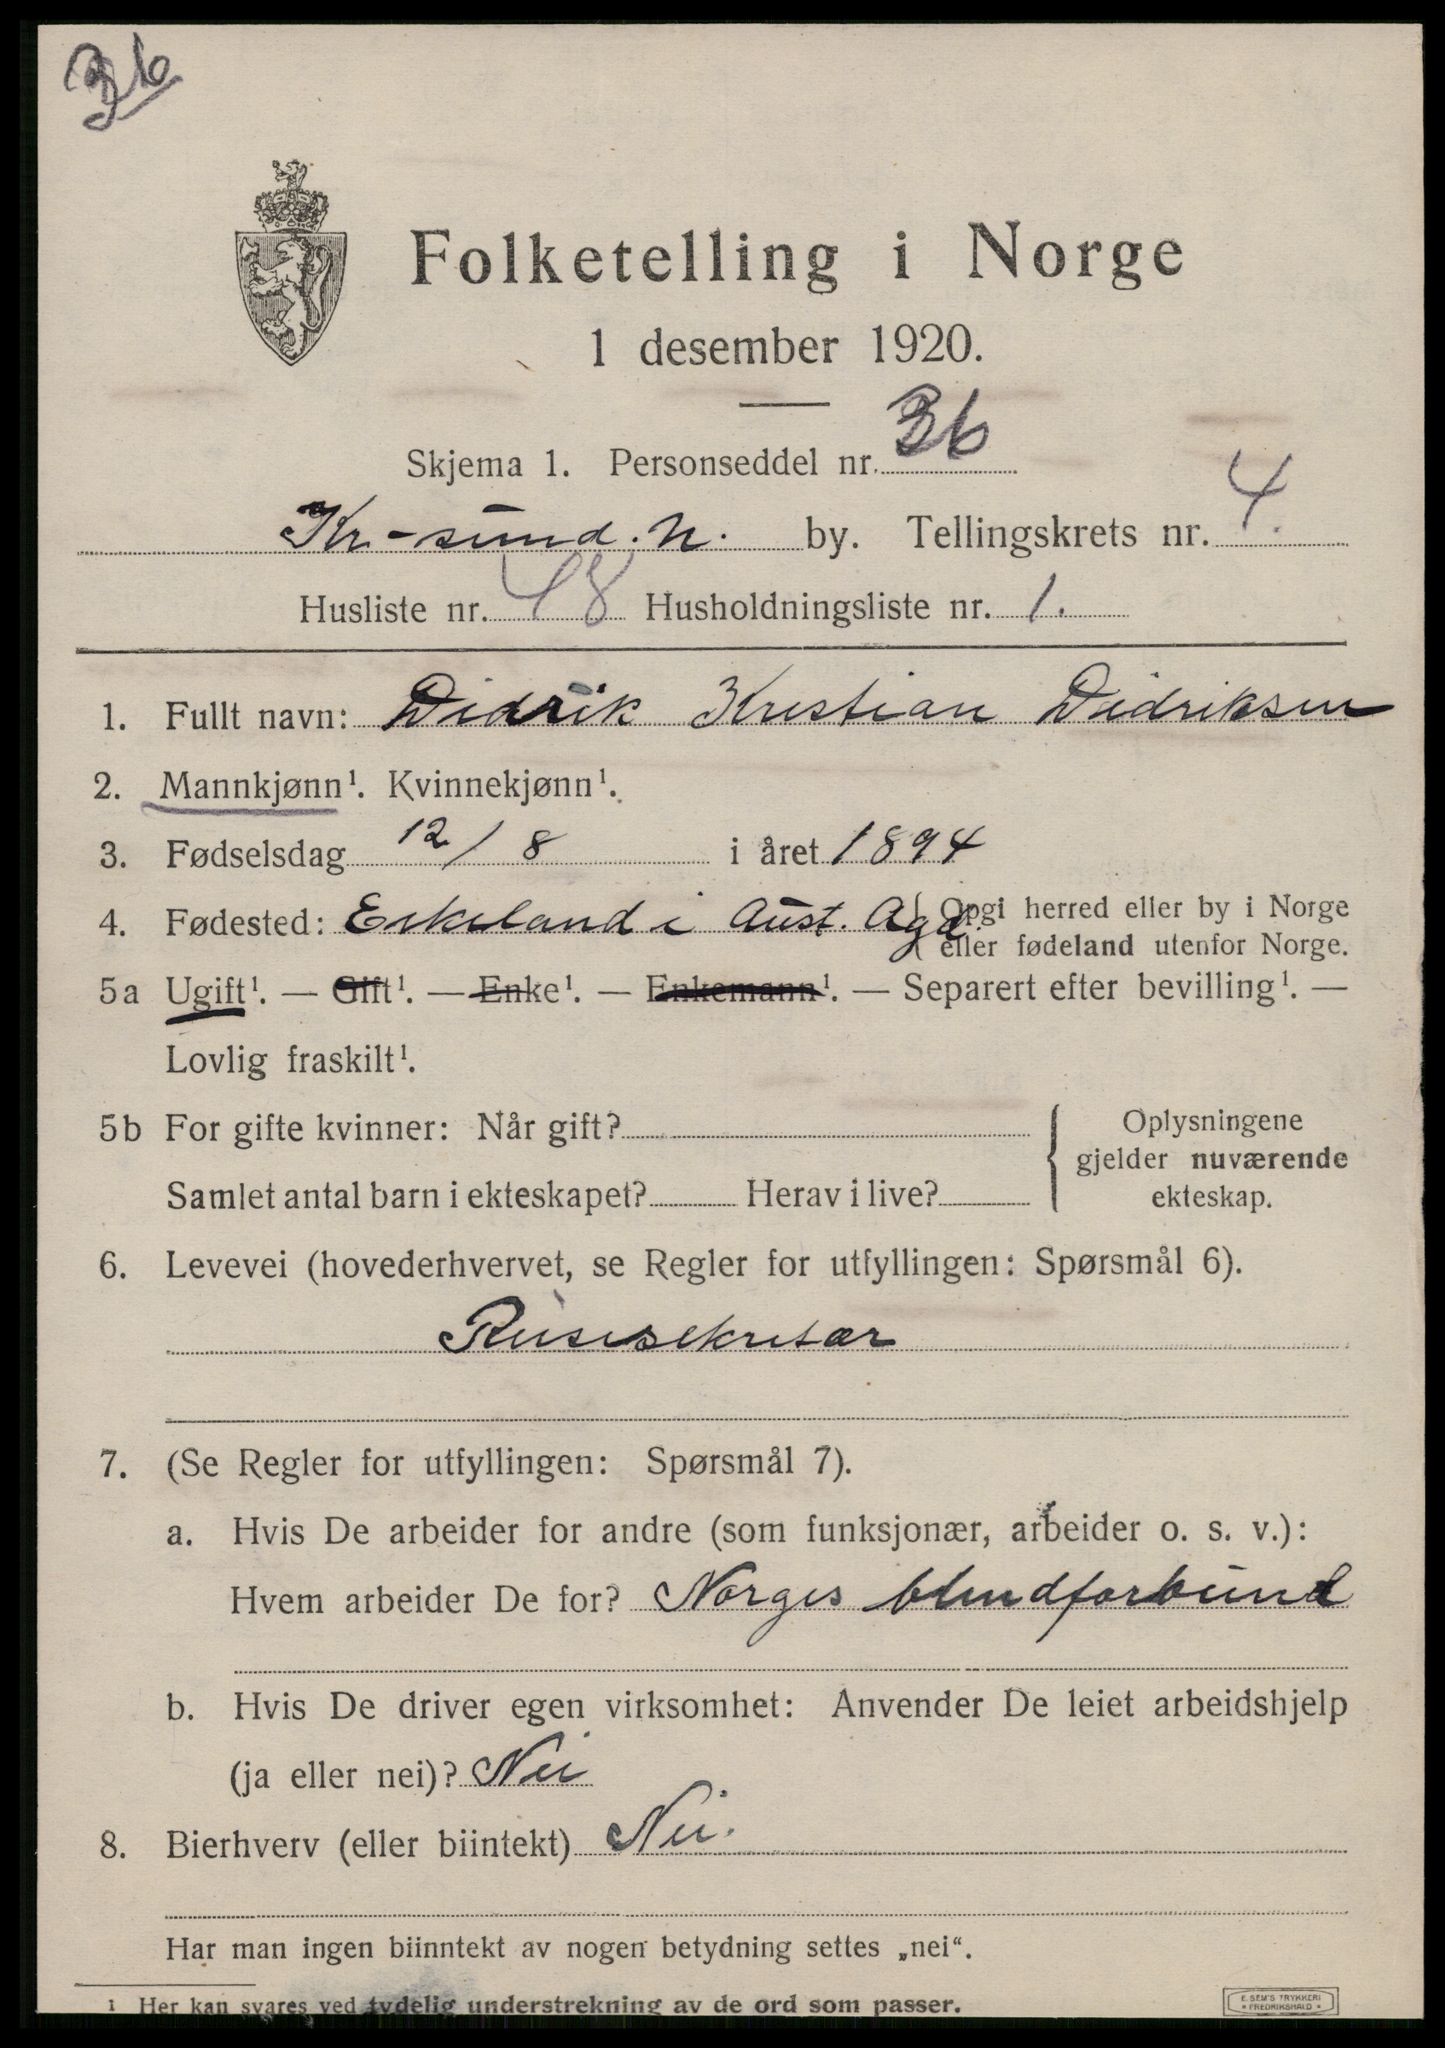 36
Folketelling i Norge
1 desember 1920.
Skjema 1. Personseddel nr. 36
Kr-sund. N. by. Tellingskrets nr. 4.
Husliste nr. 48 Husholdningsliste nr. 1.
1. Fullt navn: Didrik Kristian Didriksen
2. Mannkjønn¹. Kvinnekjønn¹.
3. Fødselsdag 12/8 i året 1894
4. Fødested: Eikeland i Aust. Agd. (Opgi herred eller by i Norge
eller fødeland utenfor Norge.
5a Ugift¹. — Gift¹. — Enke¹. — Enkemann¹. — Separert efter bevilling¹. —
Lovlig fraskilt¹.
5b For gifte kvinner: Når gift? { Oplysningene
gjelder nuværende
Samlet antal barn i ekteskapet? Herav i live? ekteskap.
6. Levevei (hovederhvervet, se Regler for utfyllingen: Spørsmål 6).
Reisesekretær
7. (Se Regler for utfyllingen: Spørsmål 7).
a. Hvis De arbeider for andre (som funksjonær, arbeider o. s. v.):
Hvem arbeider De for? Norges blindforbund
b. Hvis De driver egen virksomhet: Anvender De leiet arbeidshjelp
(ja eller nei)? Nei
8. Bierhverv (eller biintekt) Nei.
Har man ingen biinntekt av nogen betydning settes „nei“.
¹ Her kan svares ved tydelig understrekning av de ord som passer.
E. SEM'S TRYKKERI
* FREDRIKSHALD *